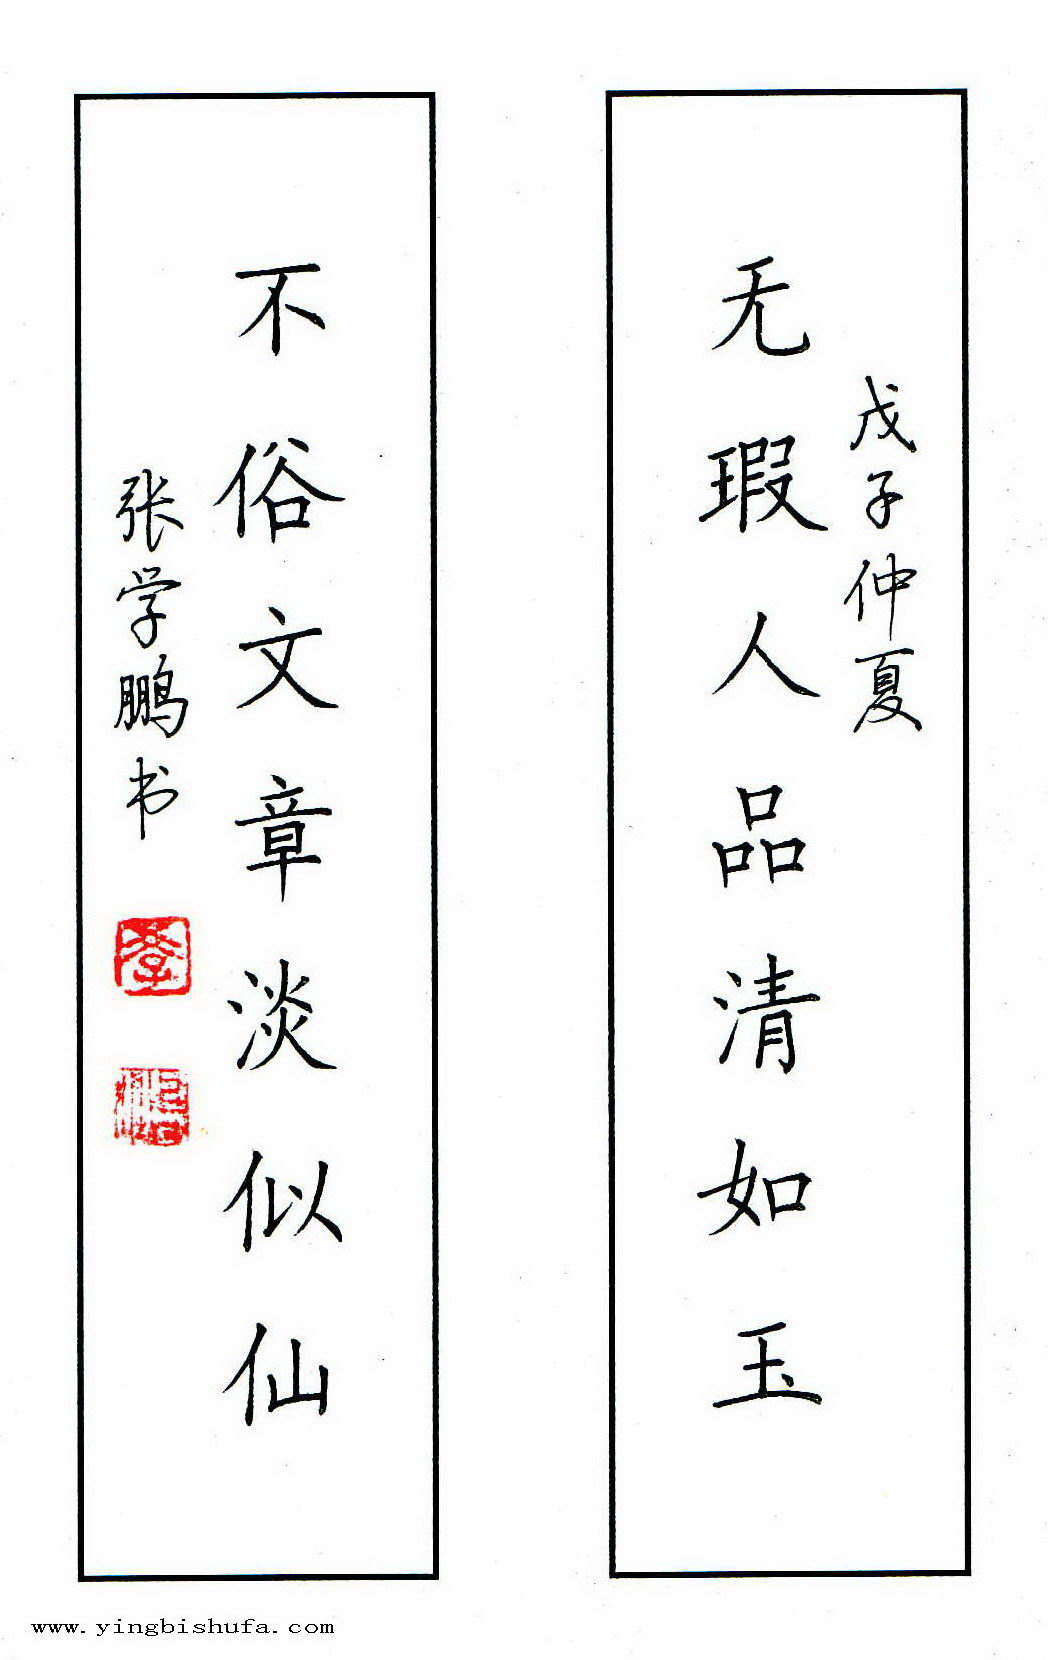 戊子仲夏
无瑕人品清如玉
不俗文章淡似仙
张学鹏书
www.yingbishufa.com